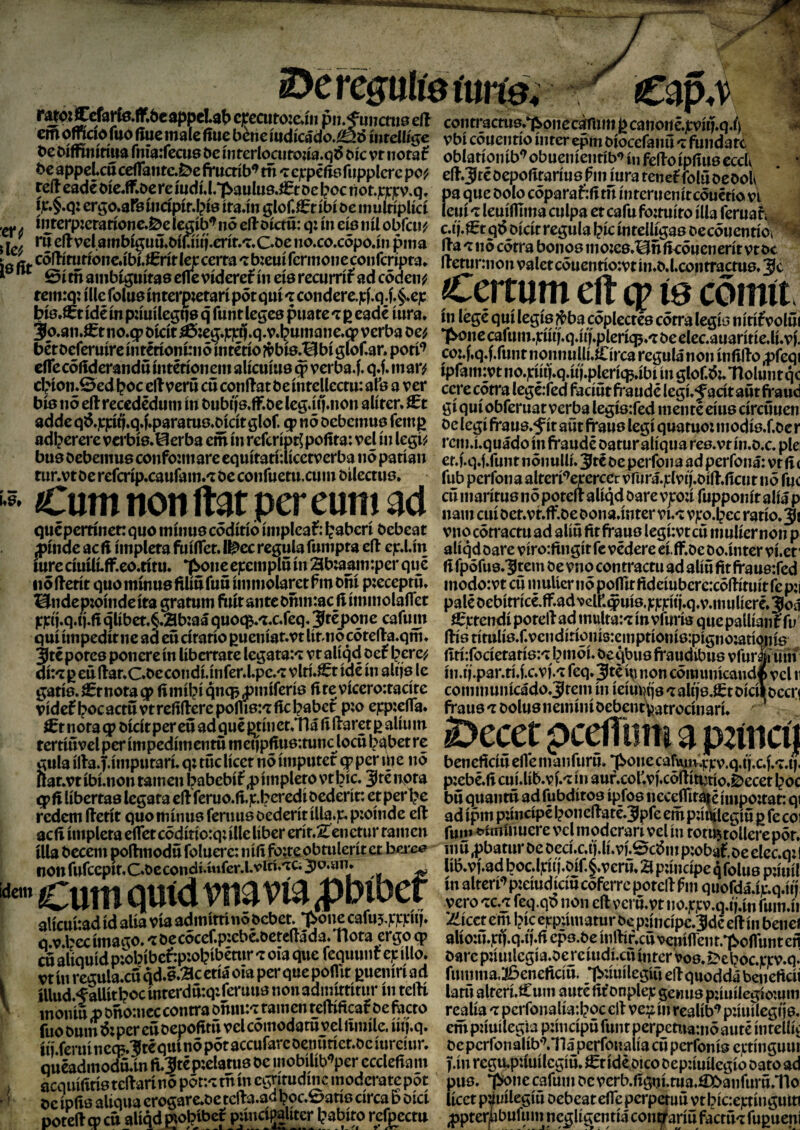 De regulis iuris. Cap.v
rato: Cesaris.ff.de appel.ab executore.in pn.functus est
em officio suo siue male siue bene iudicãdo.
de diffinitiua snia:secus de interlocutoria.qd dic vt notat
de appel.cũ cessante.De fructib⁹ tñ ⁊ expẽsis supplere po
test eadẽ die.ff.de re iudi.l.Paulus.Et de hoc not.xxxv.q.
ix.§.q: ergo.als incipit.his ita.in glos.Et ibi de multiplici
interpretatione.De legib⁹ nõ est dictũ: q: in eis nil obscu
rũ est vel ambiguũ.dis.iiij.erit.⁊.C.de no.co.cõpo.in prima
cõstitutione.ibi.Erit lex certa ⁊ breui sermone conscripta.
Si tñ ambiguitas esse videret in eis recurrit ad cõden
tem:q: ille solus interpretari põt qui ⁊ condere.xj.q.j.§.ex
his.Et idẽ in priuilegijs q sunt leges priuate ⁊ p eadẽ iura.
Jo.an.Et no.qp dicit Greg.xxij.q.v.humane.qp verba de
bẽt deseruire intẽtioni:nõ intẽtio vbis.Ubi glos.ar. poti⁹
esse cõsiderandũ intẽtionem alicuius qp verba.f. q.j. mar
chion.Sed hoc est verũ cũ constat de intellectu: als a ver
bis nõ est recedẽdum in dubijs.ff.de leg.iij.non aliter. Et
adde qd.xxiij.q.j.paratus.dicit glos. qp nõ debemus semp
adherere verbis.Verba em in rescript posita: vel in legi
bus debemus conformare equitati:licet verba nõ patian
tur.vt de rescrip.causam.⁊ de consuetu.cum dilectus.
Cum non stat per eum ad
quẽ pertinet: quo minus cõditio impleat: haberi debeat
pinde ac si impleta fuisset. Hec regula sumpta est ex.l.in
iure ciuili.ff.eo.titu. Pone exemplũ in Abraam:per quẽ
nõ stetit quo minus filiũ suũ immolaret fm dñi preceptũ.
Unde proinde ita gratum fuit ante dñm:ac si immolasset
xxij.q.ij.si qlibet.§.Ab:aã quoqz.⁊.c.seq. Jtẽ pone casum
qui impedit ne ad eũ citatio pueniat.vt lit.nõ cõtesta.qm.
Jtẽ potes ponere in libertate legata:⁊ vt aliqd det here
di:⁊ p eũ stat.C.de condi.insер.l.pe.⁊ vlti.Et idẽ in alijs le
gatis. Et nota qp si mihi qnqz pmiseris si te vicero:tacite
videt hoc actũ vt resistere possis:⁊ sic habet pro expressa.
Et nota qp dicit per eũ ad quẽ ptinet.Nã si staret p alium
tertiũ vel per impedimentũ meijpsius:tunc locũ habet re
gula ista.j.imputari. q: tũc licet nõ imputet qp per me nõ
stat.vt ibi.non tamen habebit p impleto vt hic. Jtẽ nota
qp si libertas legata est seruo.si.x.heredi dederit: et per he
redem stetit quo minus seruus dederit illa.x. proinde est
ac si impleta esset cõditio:q: ille liber erit.Tenetur tamen
illa decem postmodũ soluere: nisi forte obtulerit et heres
non suscepit.C.de condi.inser.l.vlti.⁊c.Jo.an.
Cum quid vna via phibet
alicui:ad id alia via admitti nõ debet. Pone casu3.xxxiij.
q.v.hec imago. ⁊ de cõcef.prebẽ.detestãda. Nota ergo qp
cũ aliquid prohibet:prohibẽtur ⁊ oia que sequunt ex illo.
vt in regula.cũ qd.s.Ac etiã oia per que possit pueniri ad
illud.Fallit hoc interdũ:q: seruus non admittitur in testi
moniũ p dño:nec contra dñm:⁊ tamen testificat de facto
suo dum s: per eũ depositũ vel cõmodatũ vel simile. iiij.q.
iij.serui neqz.Jtẽ qui nõ põt accusare denũtiet.de iureiur.
quẽadmodũ.in fi.Jtẽ prelatus de mobilib⁹per ecclesiam
acquisitis testari nõ põt:⁊ tñ in egritudine moderate põt
de ipsis aliqua erogare.de testa.ad hoc.Satis circa b dici
potest qp cũ aliqd prohibet principaliter habito respectu
contractus.Pone casum p canonẽ.xviij.q.ij
vbi cõuentio inter epm diocesanũ ⁊ fundatc
oblationib⁹ obuenientib⁹ in festo ipsius eccli
est.Jtẽ depositarius fm iura tenet solũ de dol
pa que dolo cõparat:si tñ interuenit cõuẽtio vt
leui ⁊ leuissima culpa et casu fortuito illa seruat.
c.ij.Et qd dicit regula hic intelligas de cõuentio
sta ⁊ nõ cõtra bonos mores.Un si cõuenerit vt de
stetur:non valet cõuentio:vt in.d.l.contractus. Jc
Certum est qp is cõmit
in legẽ qui legis vba cõplectẽs cõtra legis nitit volũt
Pone casum.xiiij.q.iij.pleriqz.⁊ de elec.auaritie.li.vj.
cor.j.q.j.sunt nonnulli.Circa regulã non insisto psequi
ipsam:vt no.xiiij.q.iij.pleriqz.ibi in glos.ds. Nolunt qc
cere cõtra legẽ:sed faciũt fraudẽ legi.Facit aũt fraud
gi qui obseruat verba legis:sed mentẽ eius circũuen
de legi fraus.Fit aũt fraus legi quatuor modis.s.de r
rem.i.quãdo in fraudẽ datur aliqua res.vt in.d.c. ple
et.j.q.j.sunt nõnulli. Jtẽ de persona ad personã: vt si c
sub persona alteri⁹ exercet vsurã.xlvij.dist.sicut nõ suc
cũ maritus nõ potest aliqd dare vxori supponit aliã p
nam cui det.vt.ff.de dona.inter vi.⁊ vxo.hec ratio. Jt
vno cõtractu ad aliũ fit fraus legi:vt cũ mulier non p
aliqd dare viro:fingit se vẽdere ei.ff.de do.inter vi.et
si spõsus.Jtem de vno contractu ad aliũ fit fraus:sed
modo:vt cũ mulier nõ possit fideiubere:cõstituit se pr
palẽ debitricẽ.ff.ad velł.quis.xxxiij.q.v.mulierẽ. Joã
Extendi potest ad multa:⁊ in vsuris que palliant su
stis titulis.s.venditionis:emptionis:pignorationis
siti:societatis:⁊ hmõi. de qbus fraudibus vsurarum
in.ij.par.ti.j.c.vj.⁊ seq. Jtẽ in non cõmunicando vel n
communicãdo.Jtem in ieiunijs ⁊ alijs.Et dicit decre
fraus ⁊ dolus nemini debent patrocinari.
Decet pcessum a princij
beneficiũ esse mansurũ. Pone casum.xxv.q.ij.c.j.⁊.ij.
prebẽ.si cui.lib.vj.⁊ in aut.coł.vj.cõstitutio.Decet hoc
bũ quantũ ad subditos ipsos necessitatẽ importat: qi
ad ipm principẽ honestatẽ.Jpse em priuilegiũ p se co
sum diminuere vel moderari vel in totũ tollere põt.
miũ pbatur de deci.c.ij.li.vj.Scdm probat.de elec.q:i
lib.vj.ad hoc.lxiij.dis.§.verũ. A principe q solus priuil
in alteri⁹ preiudiciũ cõferre potest fm quosdã.ix.q.iij
vero ⁊c.⁊ seq.qd non est verũ.vt no.xxv.q.ij.in sum.ii
Licet em hic exprimatur de principe.Jdẽ est in benei
alior.xij.q.ij.si eps.de instit.cũ venissent.Possunt en
dare priuilegia.de re iudi.cũ inter vos.De hoc.xxv.q.
summa.Beneficiũ. Priuilegiũ est quoddã beneficii
latũ alteri.Cum autẽ sit duplex genus priuilegiorum
realia ⁊ personalia:hoc est verũ in realib⁹ priuilegijs.
em priuilegia principũ sunt perpetua:nõ autẽ intellig
de personalib⁹.Nã personalia cũ personis extinguunt
j.in regu.priuilegiũ. Et idẽ dico de priuilegio dato ad
pus. Pone casum de verb.signi.tua.Mansurũ.No
licet priuilegiũ debeat esse perpetuũ vt hic:extinguitt
ppter abusum negligentiã contrariũ factũ ⁊ superueni